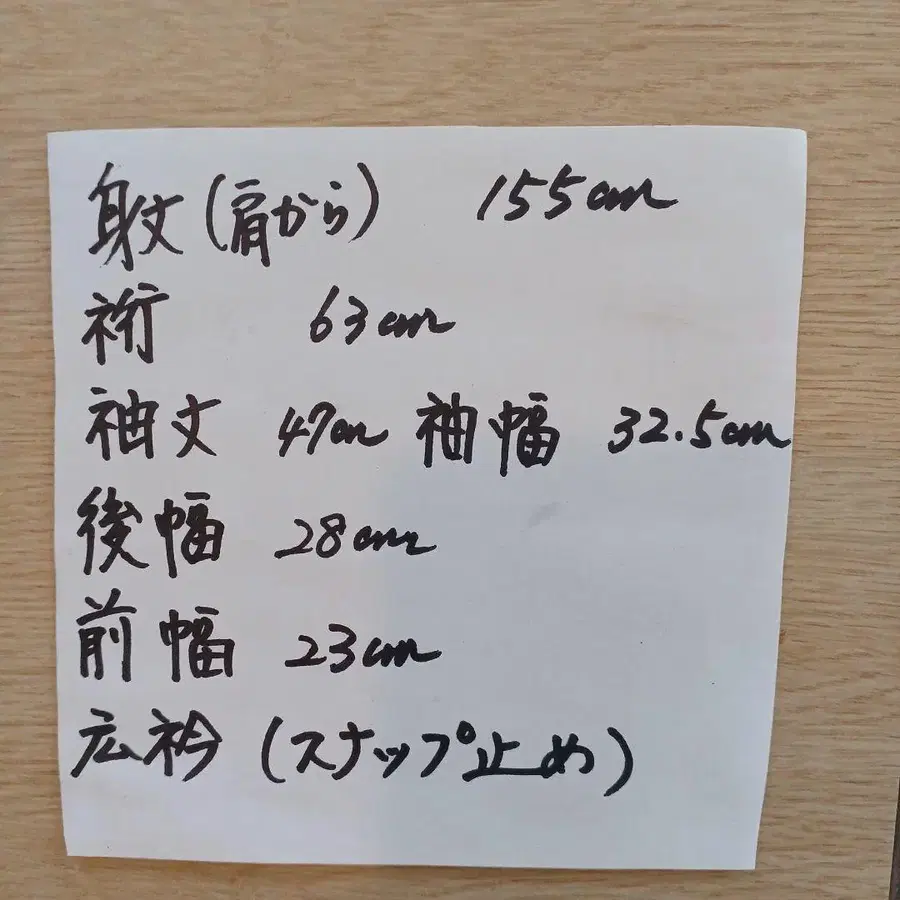 身丈(肩から) 155cm
裄 63cm
袖丈 47cm 袖幅 32.5cm
後幅 28cm
前幅 23cm
広衿 (スナップ止め)